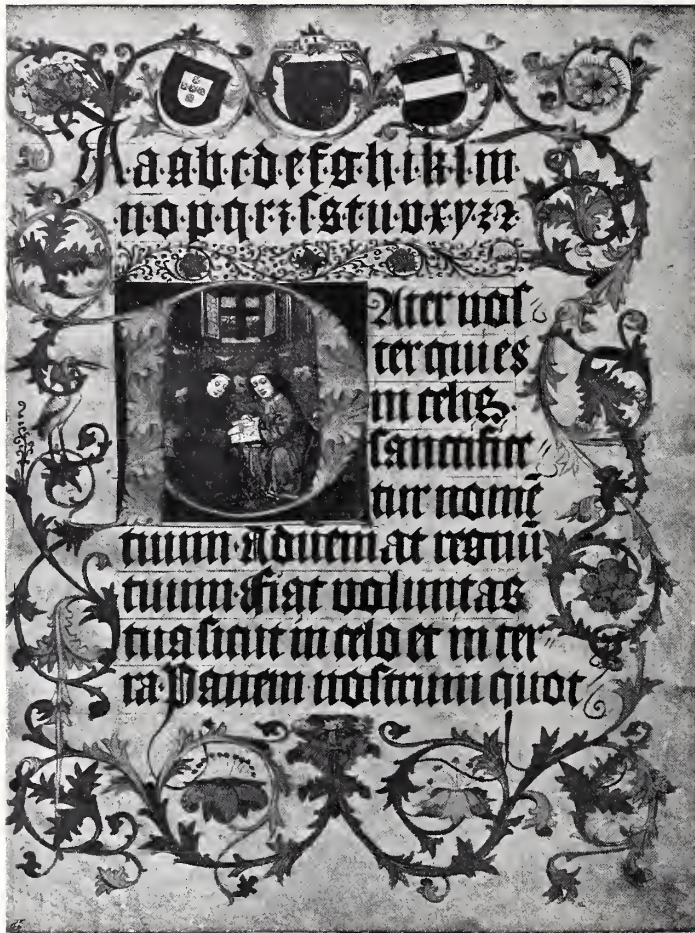 A·a·a·b·c·d·e·f·g·h·i·k·l·m
n·o·p·q·r·ꝛ·ſ·s·t·u·v·x·y·z·ꝛ
PAter noſ
ter qui es
in celis
ſanctificet
tur nomē
tuum·Adueniat regnū
tuum·fiat voluntas
tua ſicut in celo et in ter
ra·Panem noſtrum quot